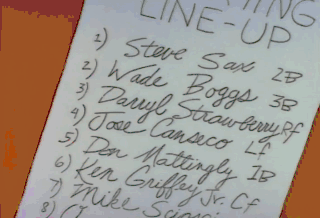 LINE-UP
1) Steve Sax 2B
2) Wade Boggs 3B
3) Darryl Strawberry RF
4) Jose Canseco LF
5) Don Mattingly 1B
6) Ken Griffey Jr. CF
7) Mike
8)